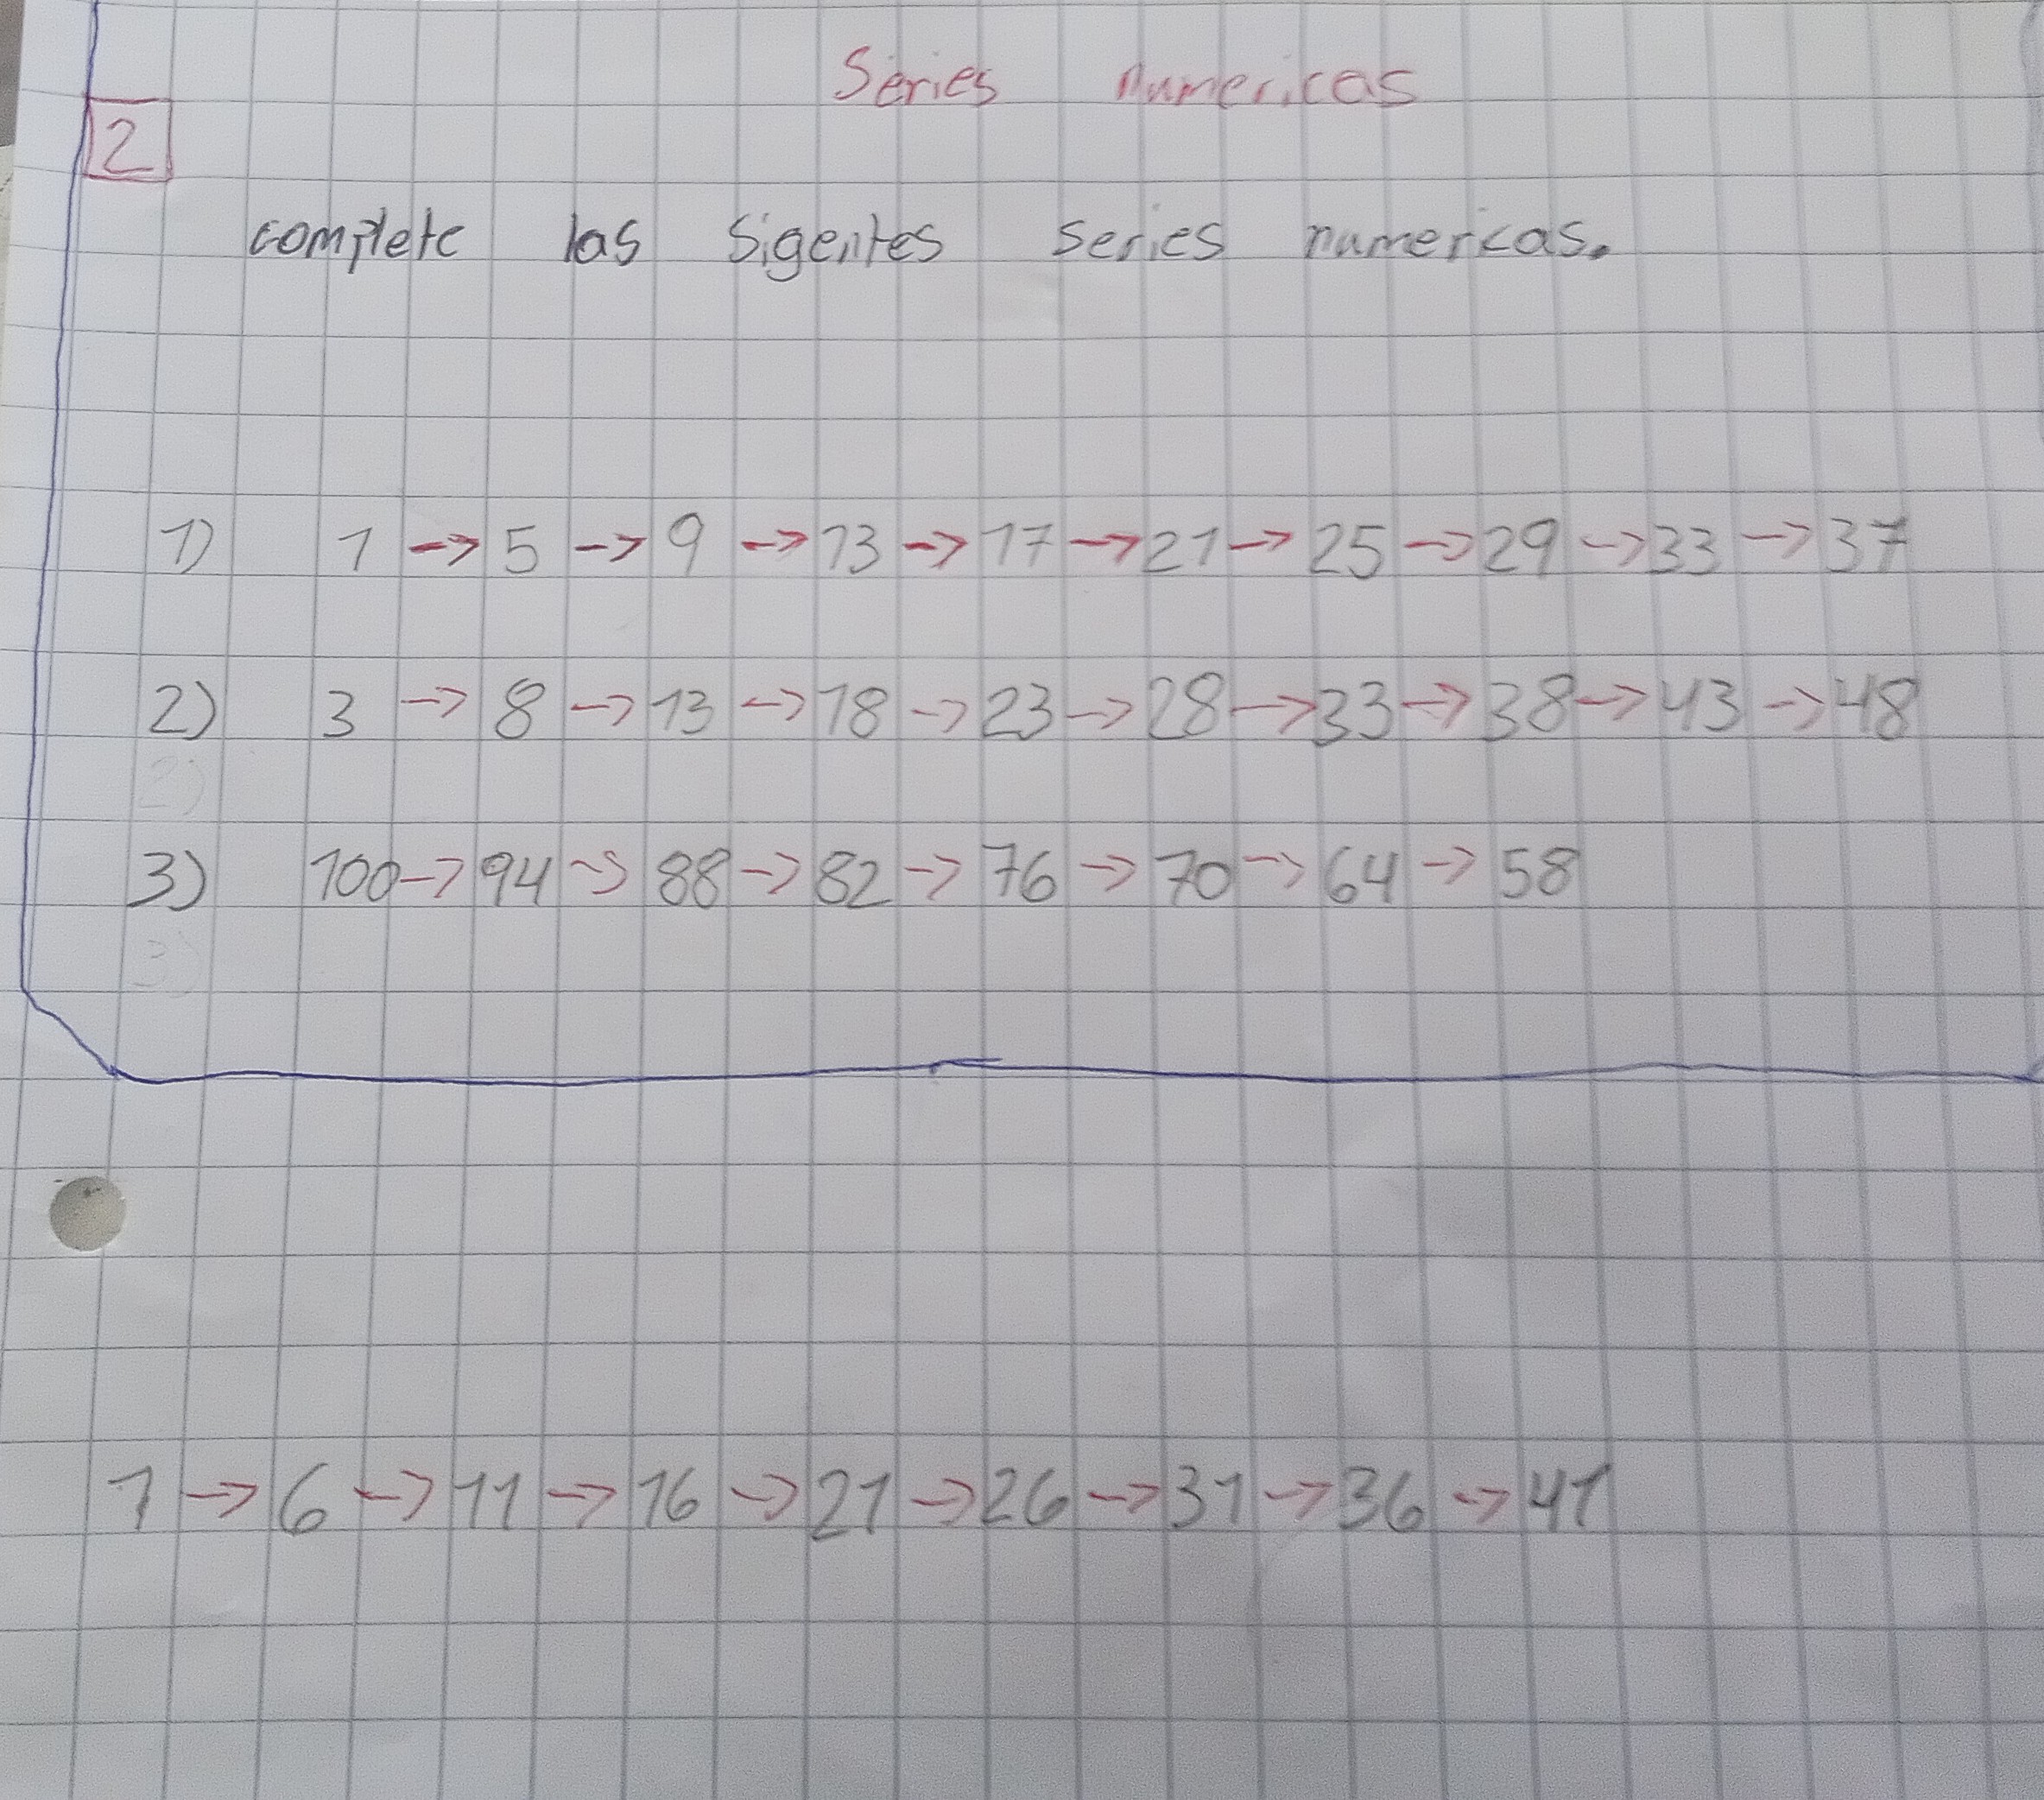 Series numericas
2
complete las sigentes series numericas.
1) 1 -> 5 -> 9 -> 13 -> 17 -> 21 -> 25 -> 29 -> 33 -> 37
2) 3 -> 8 -> 13 -> 18 -> 23 -> 28 -> 33 -> 38 -> 43 -> 48
2)
3) 100 -> 94 -> 88 -> 82 -> 76 -> 70 -> 64 -> 58
3)
1 -> 6 -> 11 -> 16 -> 21 -> 26 -> 31 -> 36 -> 41